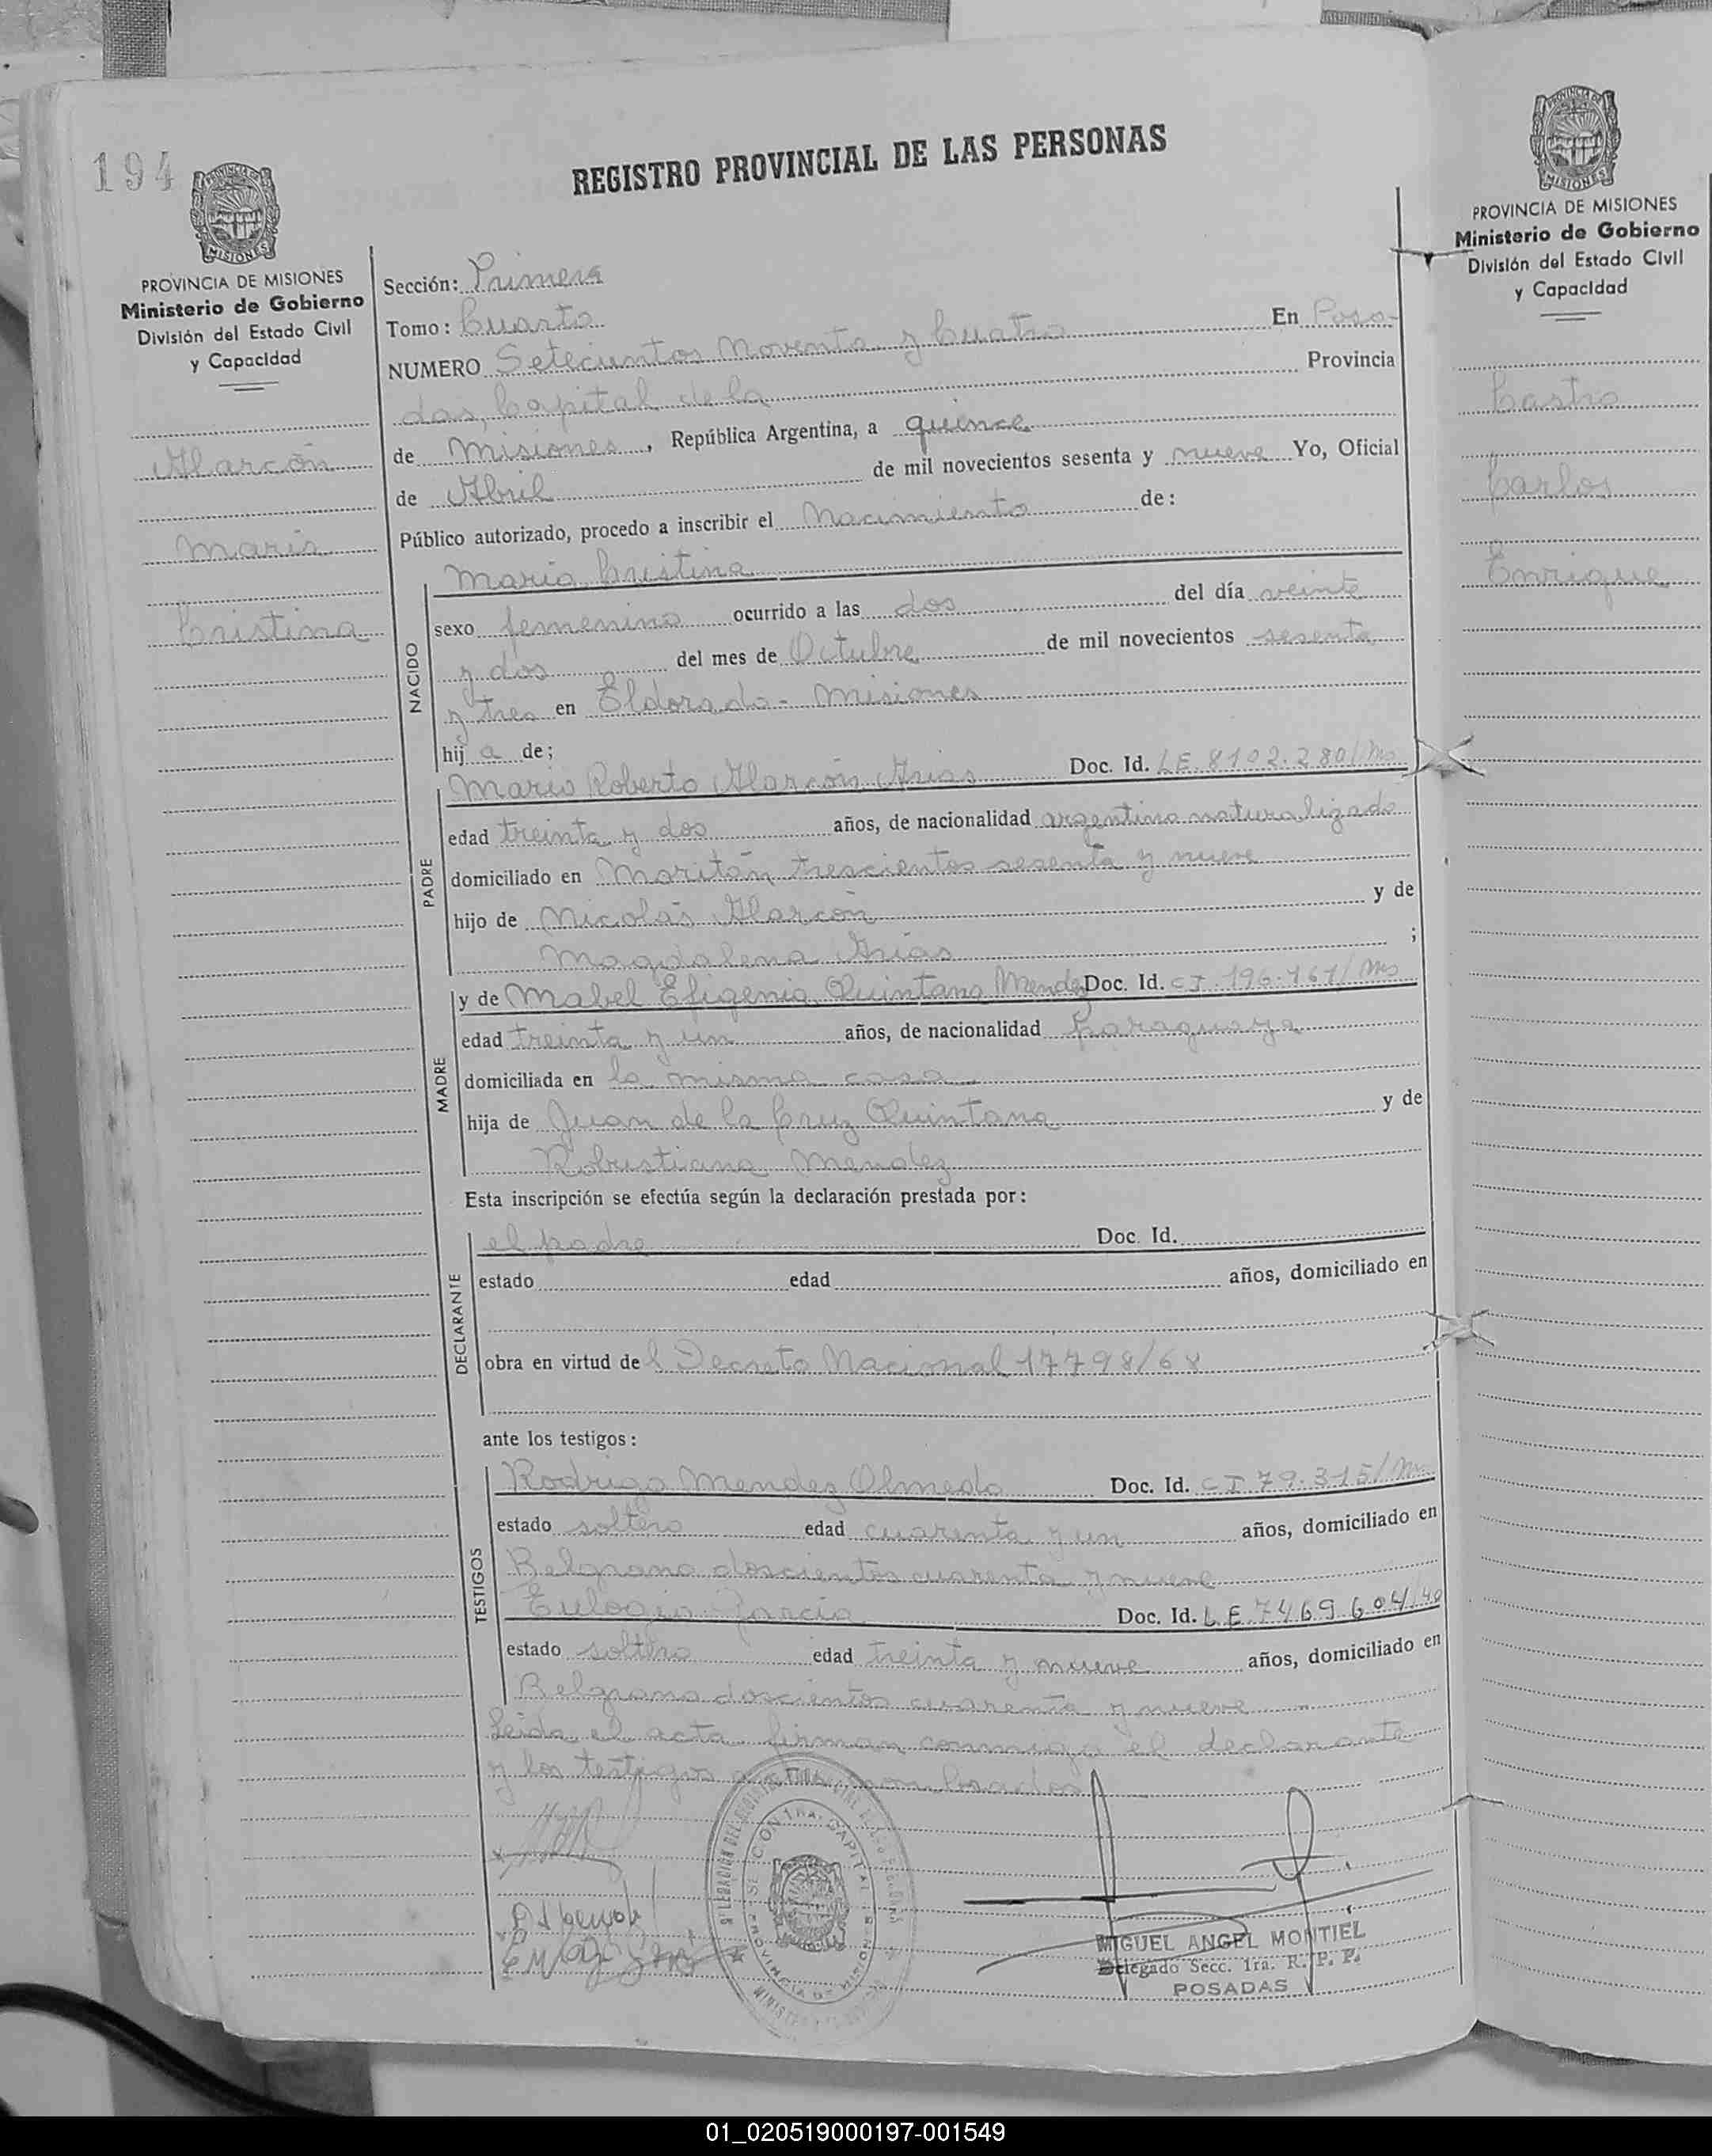 194
PROVINCIA DE MISIONES
PROVINCIA DE MISIONES
Ministerio de Gobierno
División del Estado Civil
y Capacidad
Alarcón
Maria
Cristina
REGISTRO PROVINCIAL DE LAS PERSONAS
Sección: Primera
Tomo: Cuarto
NUMERO Setecientos Noventa y Cuatro En Posa-
das, Capital de la Provincia
de Misiones, República Argentina, a quince
de Abril de mil novecientos sesenta y nueve Yo, Oficial
Público autorizado, procedo a inscribir el Nacimiento de:
NACIDO
Maria Cristina
sexo femenino ocurrido a las dos del día veinte
y dos del mes de Octubre de mil novecientos sesenta
y tres en Eldorado - Misiones
hij a de;
PADRE
Mario Roberto Alarcón Arias Doc. Id. LE. 8102.280/Ms
edad treinta y dos años, de nacionalidad argentino naturalizado
domiciliado en Maritán trescientos sesenta y nueve
hijo de Nicolás Alarcón y de
Magdalena Arias ;
MADRE
y de Mabel Efigenia Quintana Mendez Doc. Id. CI. 196.161/Ms
edad treinta y un años, de nacionalidad Paraguaya
domiciliada en la misma casa
hija de Juan de la Cruz Quintana y de
Robustiana Mendez
Esta inscripción se efectúa según la declaración prestada por:
DECLARANTE
el padre Doc. Id.
estado edad años, domiciliado en
obra en virtud de l Decreto Nacional 17798/68
ante los testigos:
TESTIGOS
Rodrigo Mendez Olmedo Doc. Id. CI 79.315/Ms
estado soltero edad cuarenta y un años, domiciliado en
Belgrano doscientos cuarenta y nueve
Eulogio Garcia Doc. Id. L.E. 7469.604/40
estado soltero edad treinta y nueve años, domiciliado en
Belgrano doscientos cuarenta y nueve
Leida el acta firman conmigo el declarante
y los testigos
MIGUEL ANGEL MONTIEL
Delegado Secc. 1ra. R. P. P.
POSADAS
PROVINCIA DE MISIONES
PROVINCIA DE MISIONES
Ministerio de Gobierno
División del Estado Civil
y Capacidad
Castro
Carlos
Enrique
01_020519000197-001549